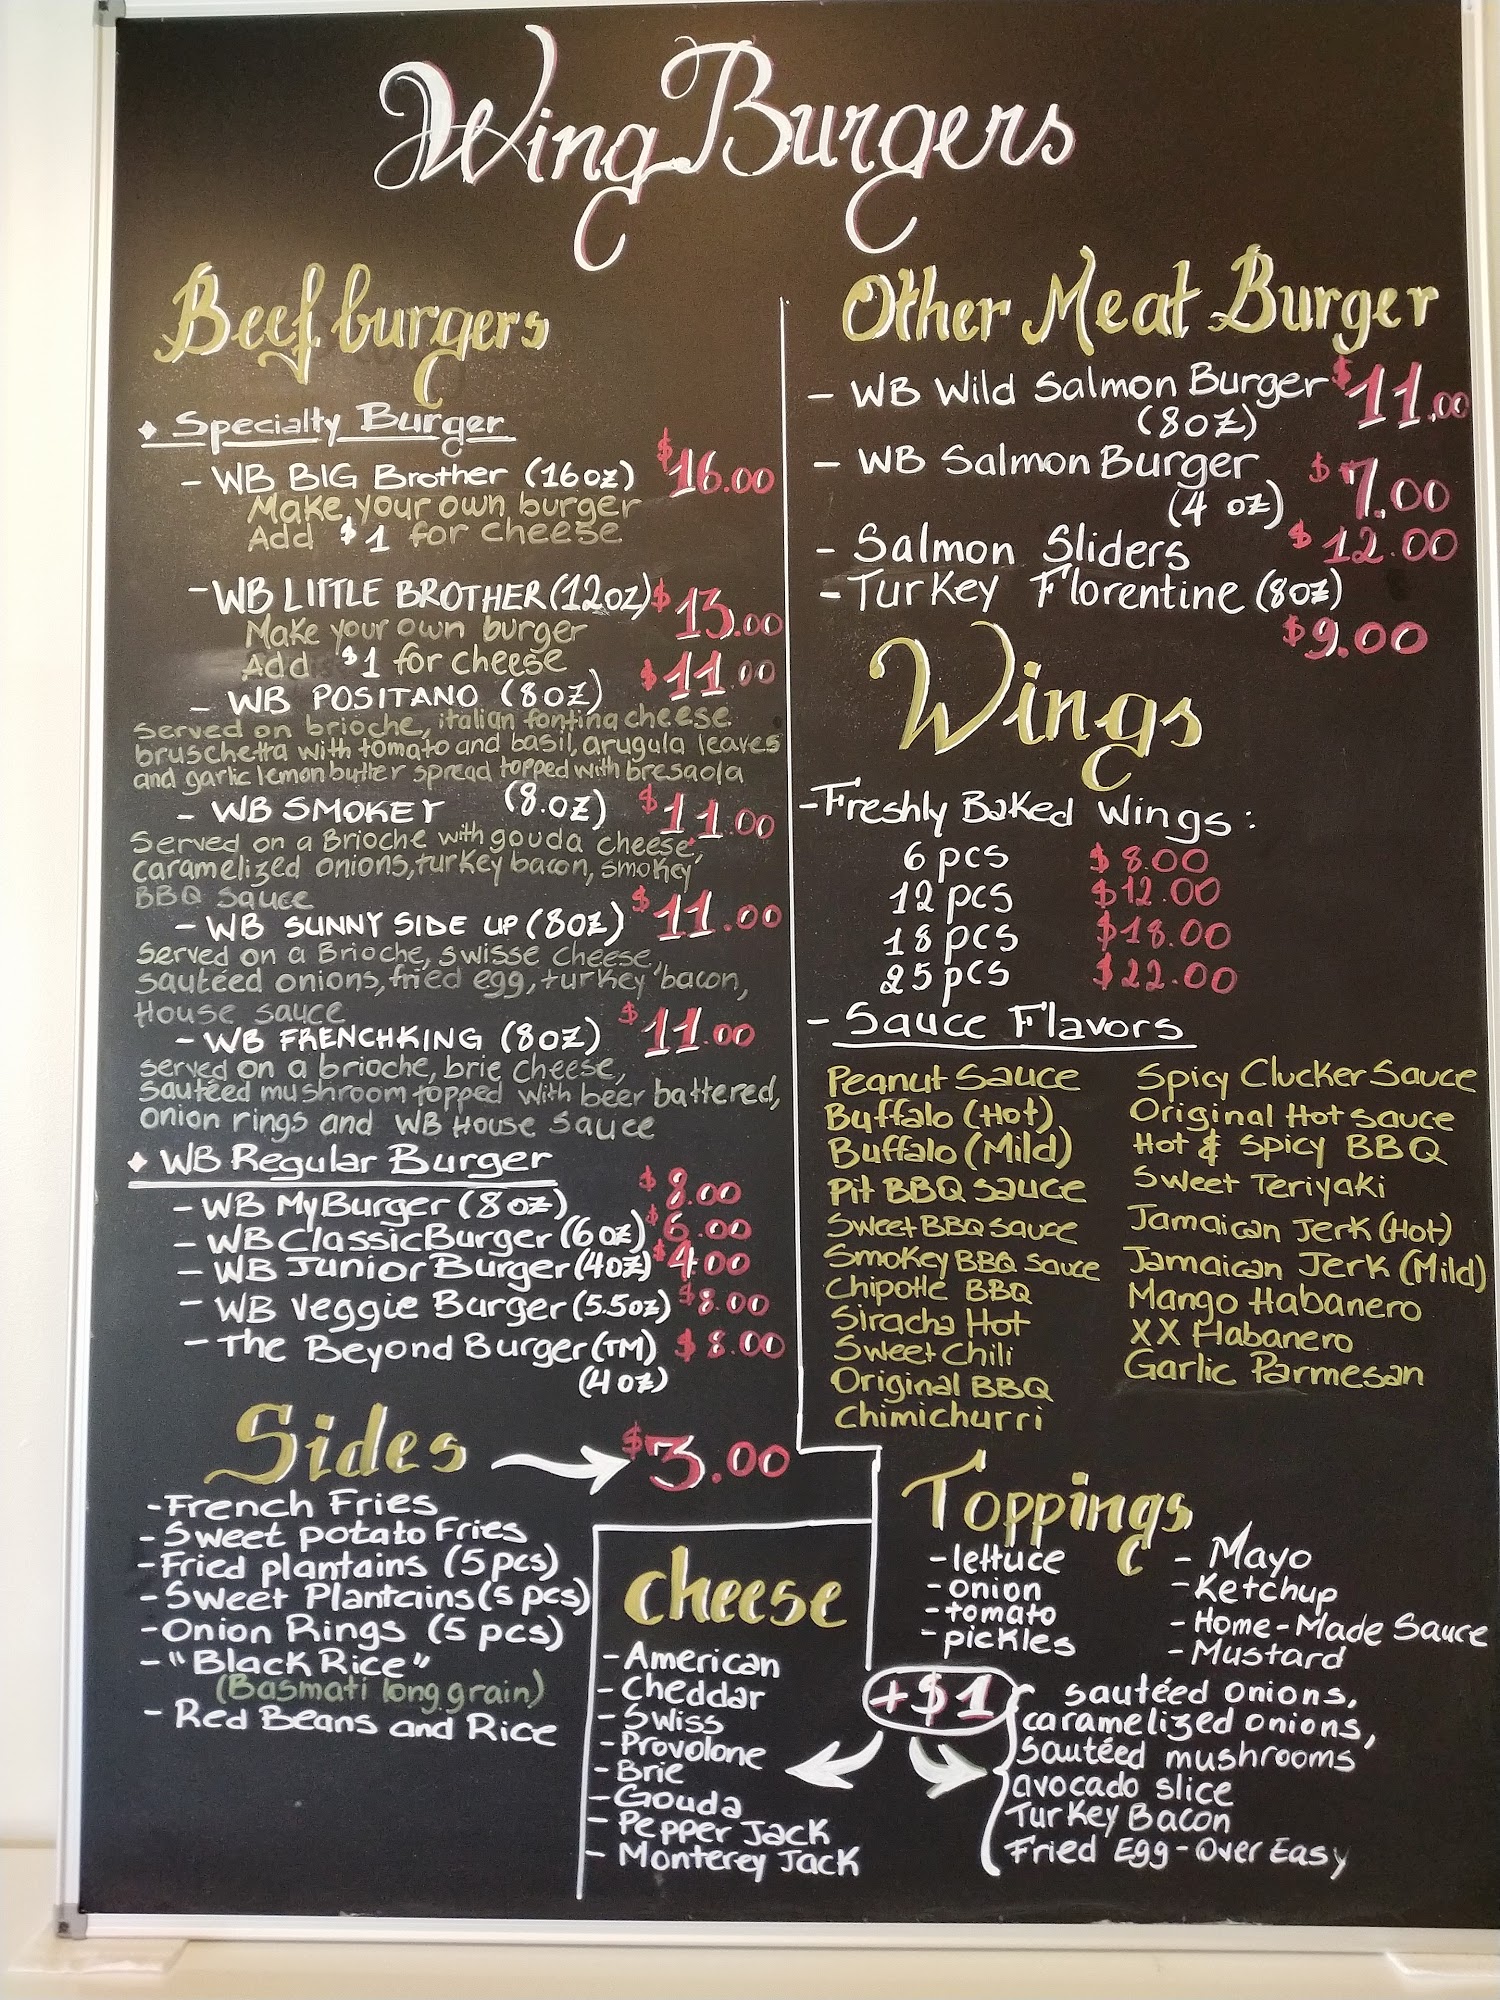 Wing Burgers
Beef burgers
Specialty Burger
- WB BIG Brother (16oz) $16.00
Make your own burger
Add $1 for cheese
- WB LITTLE BROTHER (12oz) $13.00
Make your own burger
Add $1 for cheese
- WB POSITANO (8oz) $11.00
Served on brioche, italian fontina cheese
bruschetta with tomato and basil, arugula leaves
and garlic lemon butter spread topped with bresaola
- WB SMOKEY (8.oz) $11.00
Served on a Brioche with gouda cheese,
caramelized onions, turkey bacon, smokey
BBQ sauce
- WB SUNNY SIDE UP (8oz) $11.00
Served on a Brioche, swisse cheese,
sautéed onions, fried egg, turkey bacon,
House sauce
- WB FRENCHKING (8oz) $11.00
served on a brioche, brie cheese,
sautéed mushroom topped with beer battered,
onion rings and WB House Sauce
WB Regular Burger
- WB MyBurger (8oz) $8.00
- WB Classic Burger (6oz) $6.00
- WB Junior Burger (4oz) $4.00
- WB Veggie Burger (5.5oz) $8.00
- The Beyond Burger (TM) $8.00
(4oz)
Sides $3.00
- French Fries
- Sweet potato Fries
- Fried plantains (5pcs)
- Sweet Plantains (5 pcs)
- Onion Rings (5 pcs)
- "Black Rice"
(Basmati long grain)
- Red Beans and Rice
cheese
- American
- Cheddar
- Swiss
- Provolone
- Brie
- Gouda
- Pepper Jack
- Monterey Jack
Other Meat Burger
- WB Wild Salmon Burger $11.00
(8oz)
- WB Salmon Burger $7.00
(4 oz)
- Salmon Sliders $12.00
- Turkey Florentine (8oz)
$9.00
Wings
- Freshly Baked Wings:
6 pcs $8.00
12 pcs $12.00
18 pcs $18.00
25 pcs $22.00
- Sauce Flavors
Peanut Sauce
Buffalo (Hot)
Buffalo (Mild)
Pit BBQ Sauce
Sweet BBQ Sauce
Smokey BBQ Sauce
Chipotle BBQ
Siracha Hot
Sweet Chili
Original BBQ
Chimichurri
Spicy Clucker Sauce
Original Hot Sauce
Hot & Spicy BBQ
Sweet Teriyaki
Jamaican Jerk (Hot)
Jamaican Jerk (Mild)
Mango Habanero
XX Habanero
Garlic Parmesan
Toppings
- lettuce
- onion
- tomato
- pickles
- Mayo
- Ketchup
- Home-Made Sauce
- Mustard
+$1
sautéed onions,
caramelized onions,
Sautéed mushrooms
avocado slice
Turkey Bacon
Fried Egg - Over Easy